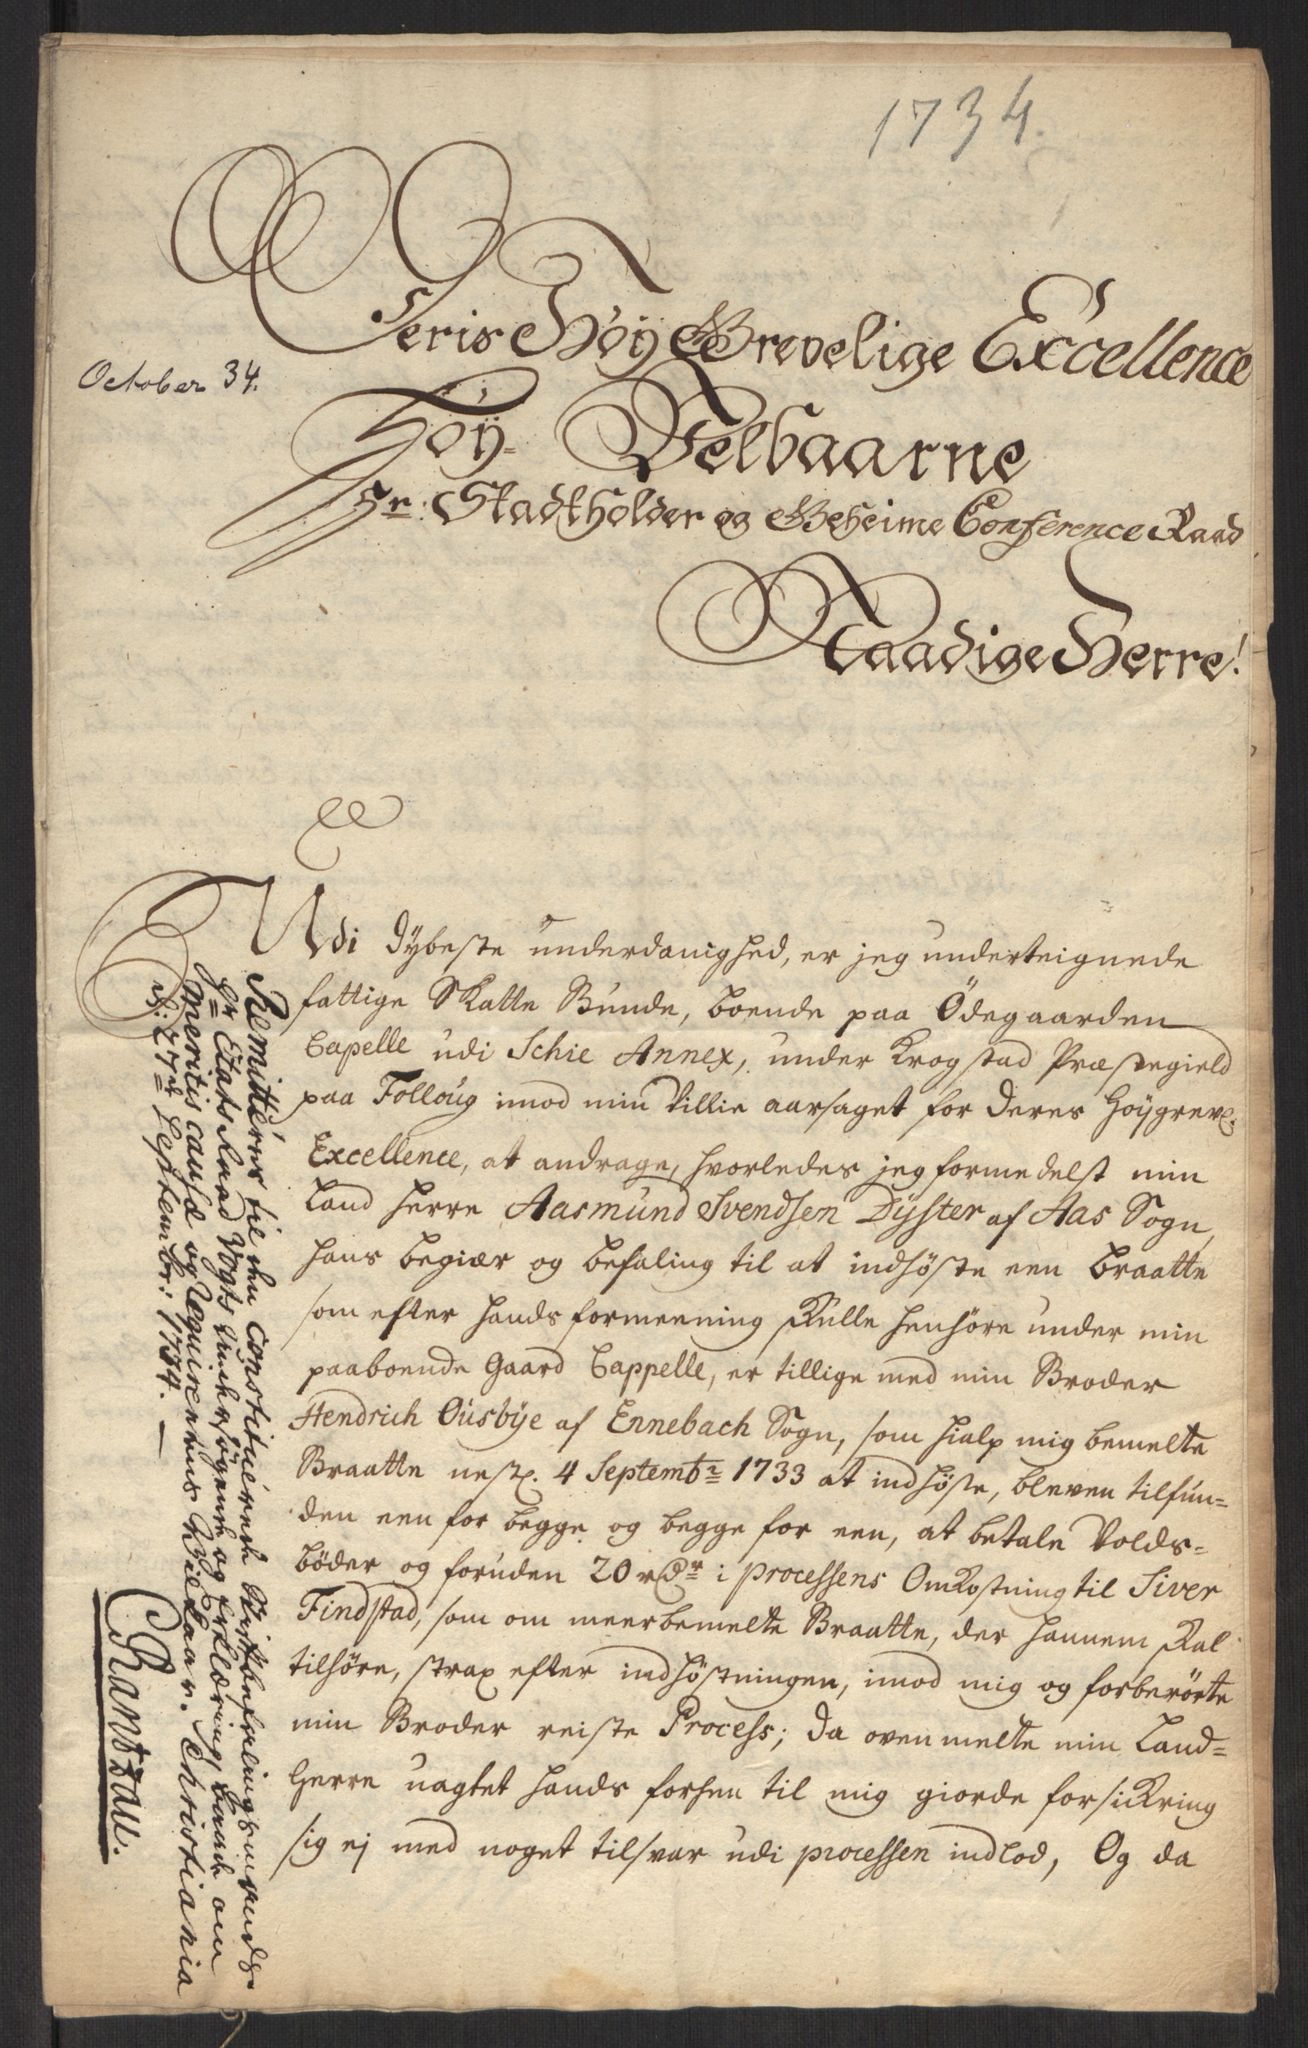 1734.
October 34.
Deris Höy Grevelige Excellence
Höÿ- Velbaarne
Hr: Stadtholder og Geheime Conference Raad
Naadige Herre!
Udi dybeste underdanighed, er jeg underteignede
fattige Skatte Bunde, boende paa Ödegaarden
Capelle udi Schie Annex, under Krogstad Præstegield
paa Folloug imod min villie aarsaget for Deres Höygrevl:
Excellence, at andrage, hvorledes jeg formedelst min
Land Herre Aasmund Svendsen Dyster af Aas Sogn,
hans begiær og befaling til at indhöste een Braatte
som efter hands formeening skulle henhöre under min
paaboende Gaard Cappelle, er tillige med min Broder
Hendrich Ousbye af Ennebach Sogn, som hialp mig bemelte
Braatte nestl. 4 Septembr 1733 at indhöste, bleven tilfun=
den een for begge og begge for een, at betale Volds=
böder og foruden 20 rdr i processens Omkostning til Siver
Findstad, som om meerbemelte Braatte, der hannem skal
tilhöre, strax efter indhöstningen, imod mig og forberörte
min Broder reiste Process; da ovenmelte min Land=
Herre uagtet hands forhen til mig giorde forsickring
sig ej med noget tilsvar udi processen indlod, Og da
Remitteres til den Constituerede Stiftbefalingsmand
Hr Etats Raad Vogts undersögende og Erklæring baade om
Meritis causæ og Reqvirentens Vilkaar. Christiania
d: 27de Septembr: 1734.
Rantzau.